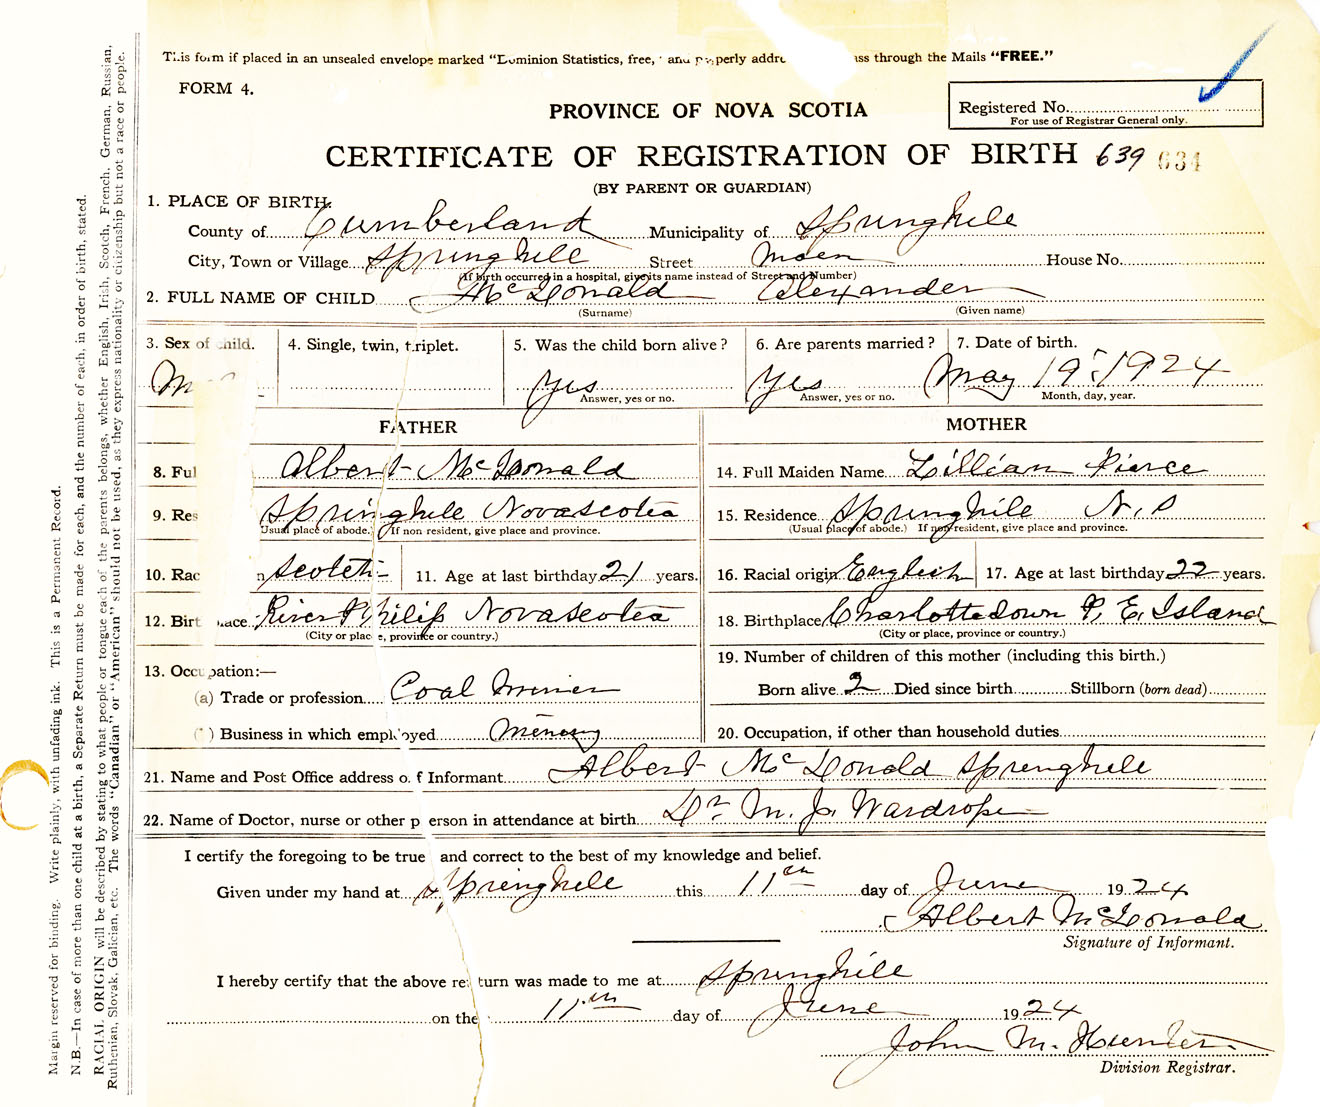 This form if placed in an unsealed envelope marked "Dominion Statistics, free, and properly addre ass through the Mails "FREE."
FORM 4.
Registered No.
For use of Registrar General only.
PROVINCE OF NOVA SCOTIA
CERTIFICATE OF REGISTRATION OF BIRTH 639 634
(BY PARENT OR GUARDIAN)
1. PLACE OF BIRTH.
County of Cumberland Municipality of Springhill
City, Town or Village Springhill Street Main House No.
(If birth occurred in a hospital, give its name instead of Street and Number)
2. FULL NAME OF CHILD McDonald Alexander
(Surname) (Given name)
3. Sex of child. 4. Single, twin, triplet. 5. Was the child born alive? 6. Are parents married? 7. Date of birth.
M Yes Yes May 19, 1924
Answer, yes or no. Answer, yes or no. Month, day, year.
FATHER MOTHER
8. Ful Albert McDonald 14. Full Maiden Name Lillian Pierce
9. Res Springhill Novascotia 15. Residence Springhill N.S
Usual place of abode.) If non resident, give place and province. (Usual place of abode.) If non resident, give place and province.
10. Rac n Scotch 11. Age at last birthday 21 years. 16. Racial origin English 17. Age at last birthday 22 years.
12. Birt lace. River Philip Novascotia 18. Birthplace Charlottedown P. E. Island
(City or place, province or country.) (City or place, province or country.)
13. Occupation:— 19. Number of children of this mother (including this birth.)
(a) Trade or profession Coal Miner Born alive 2 Died since birth Stillborn (born dead)
( ) Business in which employed Mining 20. Occupation, if other than household duties
21. Name and Post Office address of Informant Albert McDonald Springhill
22. Name of Doctor, nurse or other person in attendance at birth Dr M. J. Wardrope
I certify the foregoing to be true and correct to the best of my knowledge and belief.
Given under my hand at Springhill this 11th day of June 1924
Albert McDonald
Signature of Informant.
I hereby certify that the above return was made to me at Springhill
on the 11th day of June 1924
John M. Hunter
Division Registrar.
Margin reserved for binding. Write plainly, with unfading ink. This is a Permanent Record.
N.B.—In case of more than one child at a birth, a Separate Return must be made for each, and the number of each, in order of birth, stated.
RACIAL ORIGIN will be described by stating to what people or tongue each of the parents belongs, whether English, Irish, Scotch, French, German, Russian,
Ruthenian, Slovak, Galician, etc. The words "Canadian" or "American" should not be used, as they express nationality or citizenship but not a race or people.